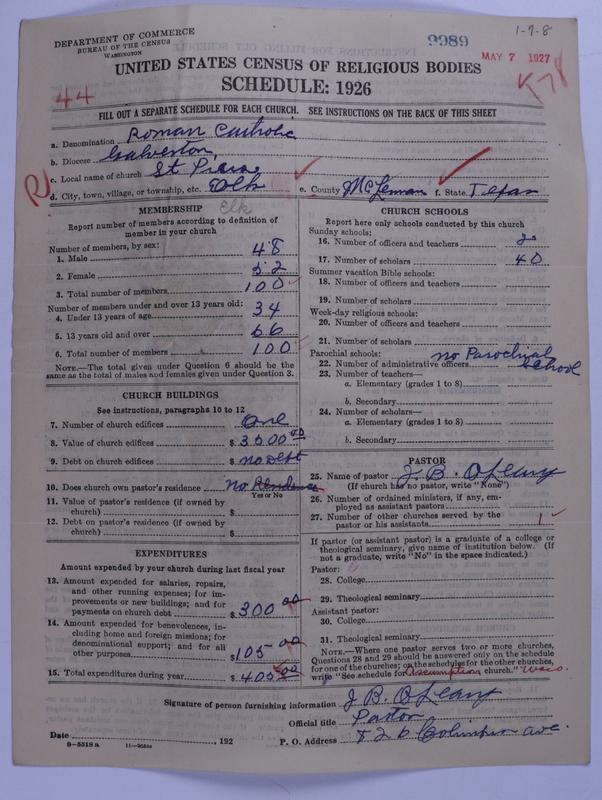 1-7-8
DEPARTMENT OF COMMERCE
BUREAU OF THE CENSUS
WASHINGTON
9989
MAY 7 1927
UNITED STATES CENSUS OF RELIGIOUS BODIES
SCHEDULE: 1926
44
FILL OUT A SEPARATE SCHEDULE FOR EACH CHURCH. SEE INSTRUCTIONS ON THE BACK OF THIS SHEET
a. Denomination Roman Catholic
b. Diocese Galveston,
c. Local name of church St
d. City, town, village, or township, etc. Elk e. County McLennan f. State Texas
Elk
MEMBERSHIP
Report number of members according to definition of
member in your church
Number of members, by sex:
1. Male 48
2. Female 52
3. Total number of members 100
Number of members under and over 13 years old:
4. Under 13 years of age 34
5. 13 years old and over 66
6. Total number of members 100
NOTE.—The total given under Question 6 should be the
same as the total of males and females given under Question 3.
CHURCH BUILDINGS
See instructions, paragraphs 10 to 12
7. Number of church edifices One
8. Value of church edifices $ 3000.00
9. Debt on church edifices $ no Debt
10. Does church own pastor's residence no Residence
Yes or No
11. Value of pastor's residence (if owned by
church) $
12. Debt on pastor's residence (if owned by
church) $
EXPENDITURES
Amount expended by your church during last fiscal year
13. Amount expended for salaries, repairs,
and other running expenses; for im-
provements or new buildings; and for
payments on church debt $ 300 00
14. Amount expended for benevolences, in-
cluding home and foreign missions; for
denominational support; and for all
other purposes $ 105 00
15. Total expenditures during year $ 405 00
CHURCH SCHOOLS
Report here only schools conducted by this church
Sunday schools:
16. Number of officers and teachers 2
17. Number of scholars 40
Summer vacation Bible schools:
18. Number of officers and teachers
19. Number of scholars
Week-day religious schools:
20. Number of officers and teachers
21. Number of scholars
Parochial schools: no Parochial
22. Number of administrative officers School
23. Number of teachers—
a. Elementary (grades 1 to 8)
b. Secondary
24. Number of scholars—
a. Elementary (grades 1 to 8)
b. Secondary
PASTOR
25. Name of pastor J. B. O'Leary
(If church has no pastor, write "None")
26. Number of ordained ministers, if any, em-
ployed as assistant pastors
27. Number of other churches served by the
pastor or his assistants 1
If pastor (or assistant pastor) is a graduate of a college or
theological seminary, give name of institution below. (If
not a graduate, write "No" in the space indicated.)
Pastor:
28. College
29. Theological seminary
Assistant pastor:
30. College
31. Theological seminary
NOTE.—Where one pastor serves two or more churches,
Questions 28 and 29 should be answered only on the schedule
for one of the churches; on the schedules for the other churches,
write "See schedule for Assumption church." Waco.
Signature of person furnishing information J B. O'Leary
Official title Pastor
Date , 192 P. O. Address Columbus ave.
8-5518a 11-9634a